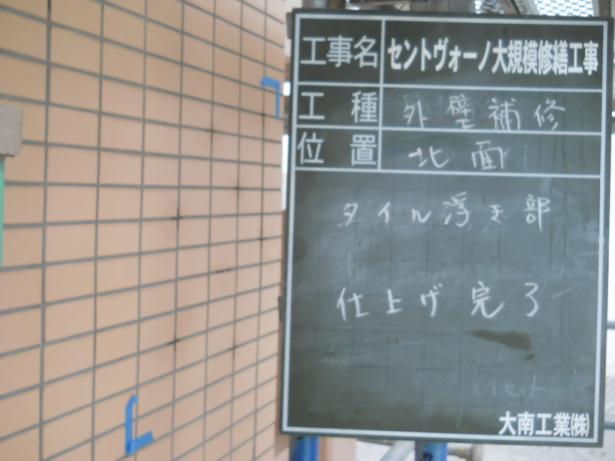 工事名 セントヴォーノ大規模修繕工事
工種 外壁補修
位置 北面
タイル浮き部
仕上げ完了
大南工業(株)